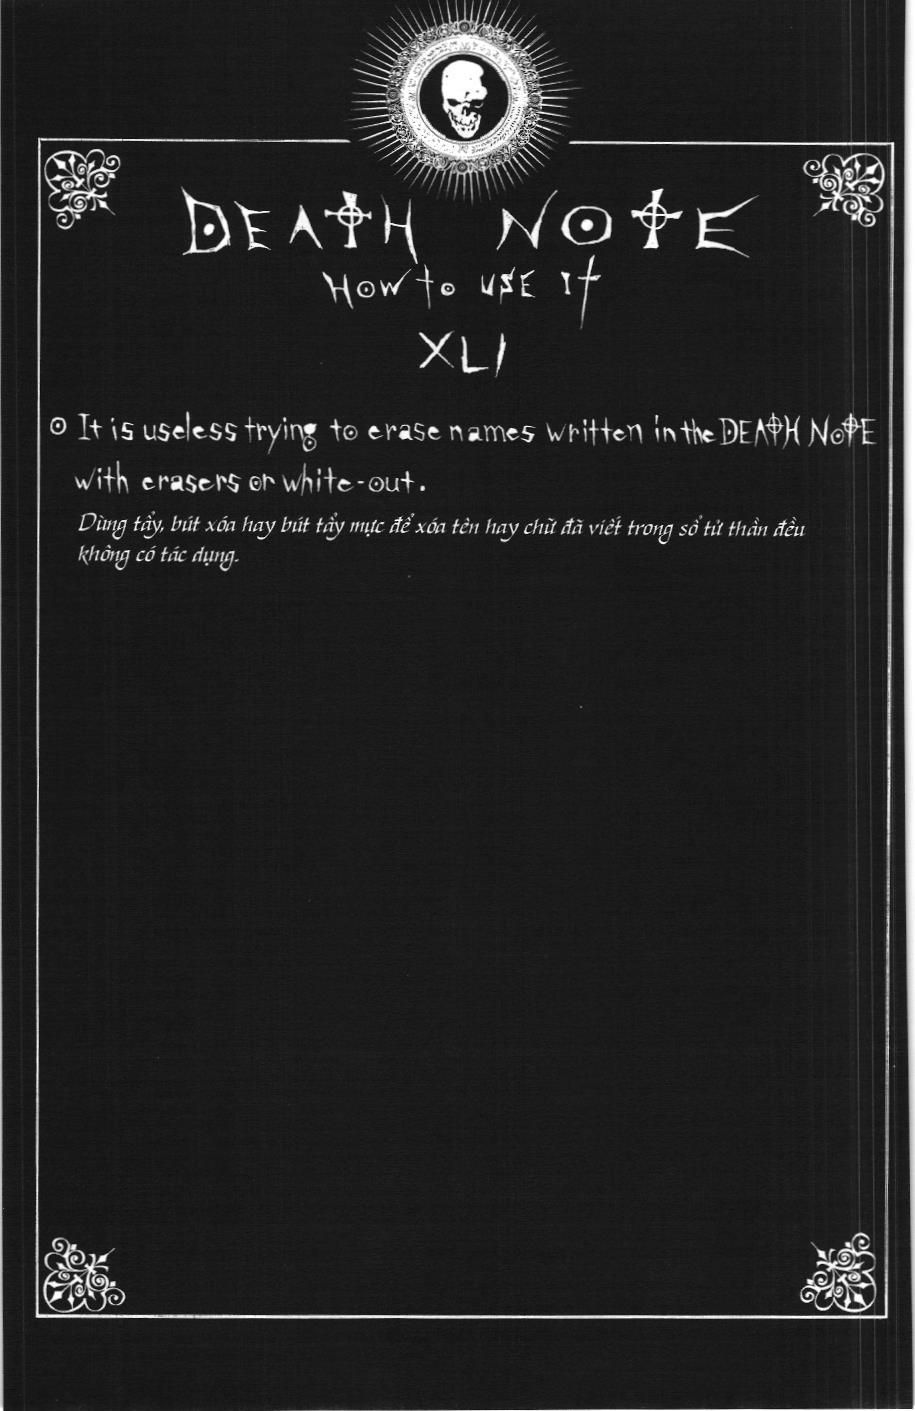 DEATH NOTE
HOW to USE It
XLI
It is useless trying to erase names written in the DEATH NOTE
with erasers or white-out.
Dùng tẩy, bút xóa hay bút tẩy mực để xóa tên hay chữ đã viết trong sổ tử thần đều
không có tác dụng.